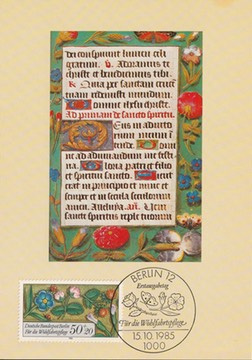 dei conspirent humen celi
gratium. ℣. Adoramus te
christe et benedicimus tibi.
℟. Quia per sanctam crucem
Domine ihesu christe.
Ad primam de sancto spiritu.
Eus in adiuto
rium meum in
Domine
ad adiuuandum me festin
Gloria patri et filio
et spiritui sancto. Sicut
erat in principio et nunc et
semper et in secula seculorum
amen. Alleluia.
Sancti spiritus
Deutsche Bundespost Berlin
Für die Wohlfahrtspflege
50+20
BERLIN 12
Ersttagsbrief
Für die Wohlfahrtspflege
15.10.1985
1000